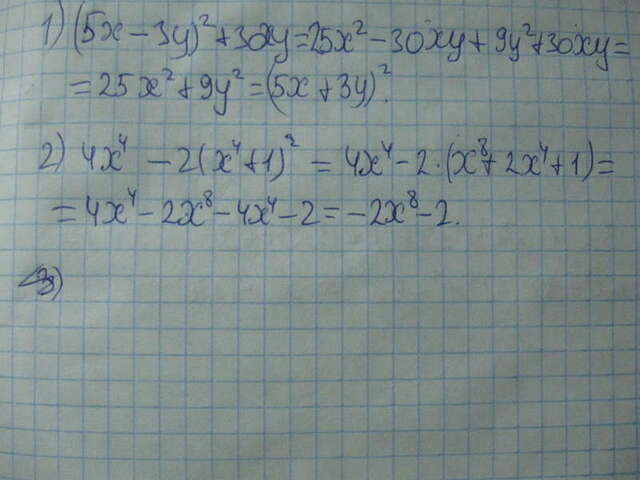 1) (5x - 3y)² + 30xy = 25x² - 30xy + 9y² + 30xy =
= 25x² + 9y² = (5x + 3y)².
2) 4x⁴ - 2(x⁴+1)² = 4x⁴ - 2·(x⁸ + 2x⁴ + 1) =
= 4x⁴ - 2x⁸ - 4x⁴ - 2 = -2x⁸ - 2.
3)